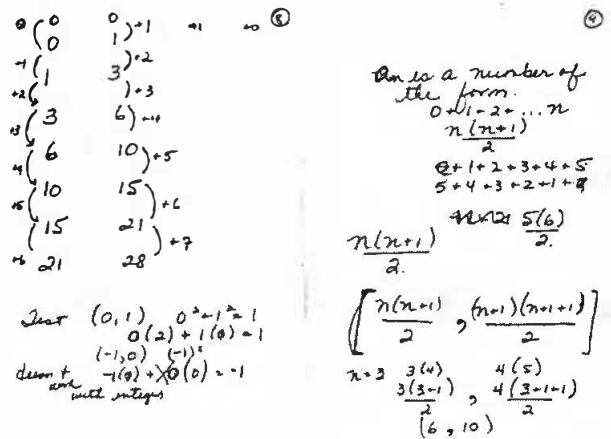 ③
0 ( 0 0 ) +1 +1 +0
0 1
+1 ( ) +2
1 3
+2 ( ) +3
3 6
+3 ( ) +4
6 10
+4 ( ) +5
10 15
+5 ( ) +6
15 21
( ) +7
+6 21 28
Test (0,1) 0² + 1² = 1
0(2) + 1(0) = 1
(-1,0) (-1)²
doesn't -1(0) + 0(0) = -1
work
with integers
④
an is a number of
the form.
0+1+2+...n
n(n+1)
2
0+1+2+3+4+5
5+4+3+2+1+0
5(6)
2.
n(n+1)
2.
[ n(n+1) , (n+1)(n+1+1) ]
2 2
n=3 3(4) 4(5)
3(3+1) , 4(3+1+1)
2 2
(6, 10)